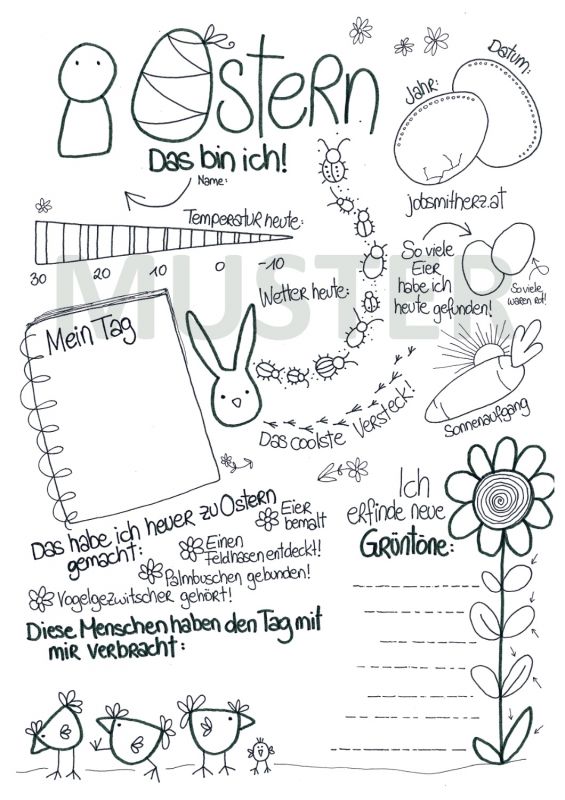 Ostern
Das bin ich!
Name:
Jahr:
Datum:
jobsmitherz.at
Temperatur heute:
30 20 10 0 -10
MUSTER
Wetter heute:
So viele
Eier
habe ich
heute gefunden!
So viele
waren rot!
Mein Tag
Das coolste Versteck!
Sonnenaufgang
Das habe ich heuer zu Ostern
gemacht:
Eier
bemalt
Einen
Feldhasen entdeckt!
Palmbuschen gebunden!
Vogelgezwitscher gehört!
Ich
erfinde neue
Grüntöne:
Diese Menschen haben den Tag mit
mir verbracht: